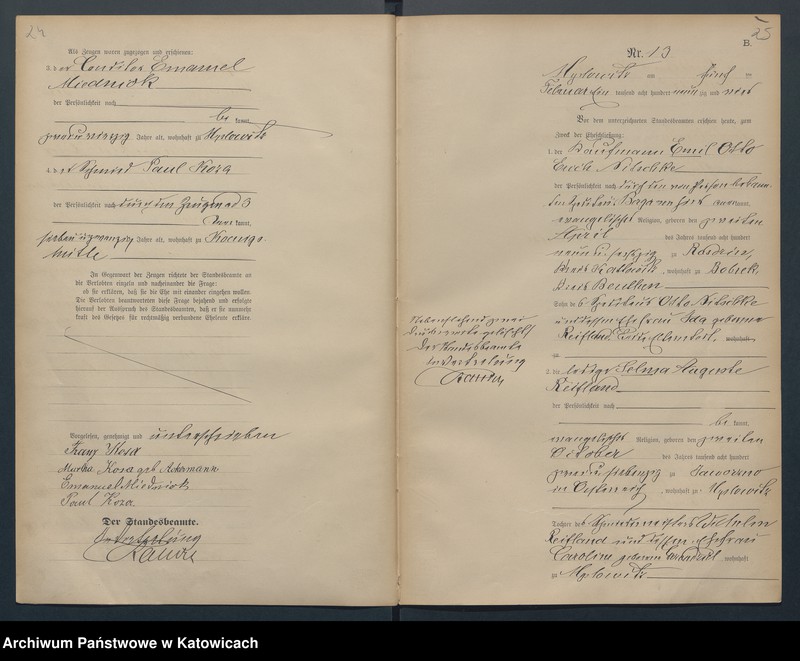 24
Als Zeugen waren zugezogen und erschienen:
3. der Conditor Emanuel
Miedniok
der Persönlichkeit nach
be kannt,
zweiundvierzig Jahre alt, wohnhaft zu Myslowitz
4. der Schmied Paul Kosa
der Persönlichkeit nach durch den Zeugen ad 3
kannt,
siebenundzwanzig Jahre alt, wohnhaft zu
hütte
In Gegenwart der Zeugen richtete der Standesbeamte an
die Verlobten einzeln und nacheinander die Frage:
ob sie erklären, daß sie die Ehe mit einander eingehen wollen.
Die Verlobten beantworteten diese Frage bejahend und erfolgte
hierauf der Ausspruch des Standesbeamten, daß er sie nunmehr
kraft des Gesetzes für rechtmäßig verbundene Eheleute erkläre.
Vorgelesen, genehmigt und unterschrieben
Franz Kosa
Martha Kosa geb. Ackermann
Emanuel Miedniok
Paul Kosa.
Der Standesbeamte.
In Vertretung
25
B.
Nr. 13
Myslowitz am fünf ten
Februar tausend acht hundert neunzig und vier
Vor dem unterzeichneten Standesbeamten erschien heute, zum
Zweck der Eheschließung:
1. der Kaufmann Emil Otto
Erich Nitschke
der Persönlichkeit nach durch den von Person bekann-
ten anerkannt,
evangelischer Religion, geboren den zweiten
April des Jahres tausend acht hundert
neun und sechszig zu Rosdzin,
Kreis Kattowitz, wohnhaft zu Bobrek
Kreis Beuthen
Sohn des Otto Nitschke
und dessen Ehefrau Ida geborene
Reifland, wohnhaft
zu
2. die ledige Selma Auguste
Reifland
der Persönlichkeit nach
be kannt,
evangelischer Religion, geboren den zweiten
October des Jahres tausend acht hundert
zweiundsiebenzig zu Jaworzno
in Oesterreich, wohnhaft zu Myslowitz
Tochter des Schmiedemeisters Wilhelm
Reifland und dessen Ehefrau
Caroline geborene wohnhaft
zu Myslowitz
Der Standesbeamte
In Vertretung
Archiwum Państwowe w Katowicach